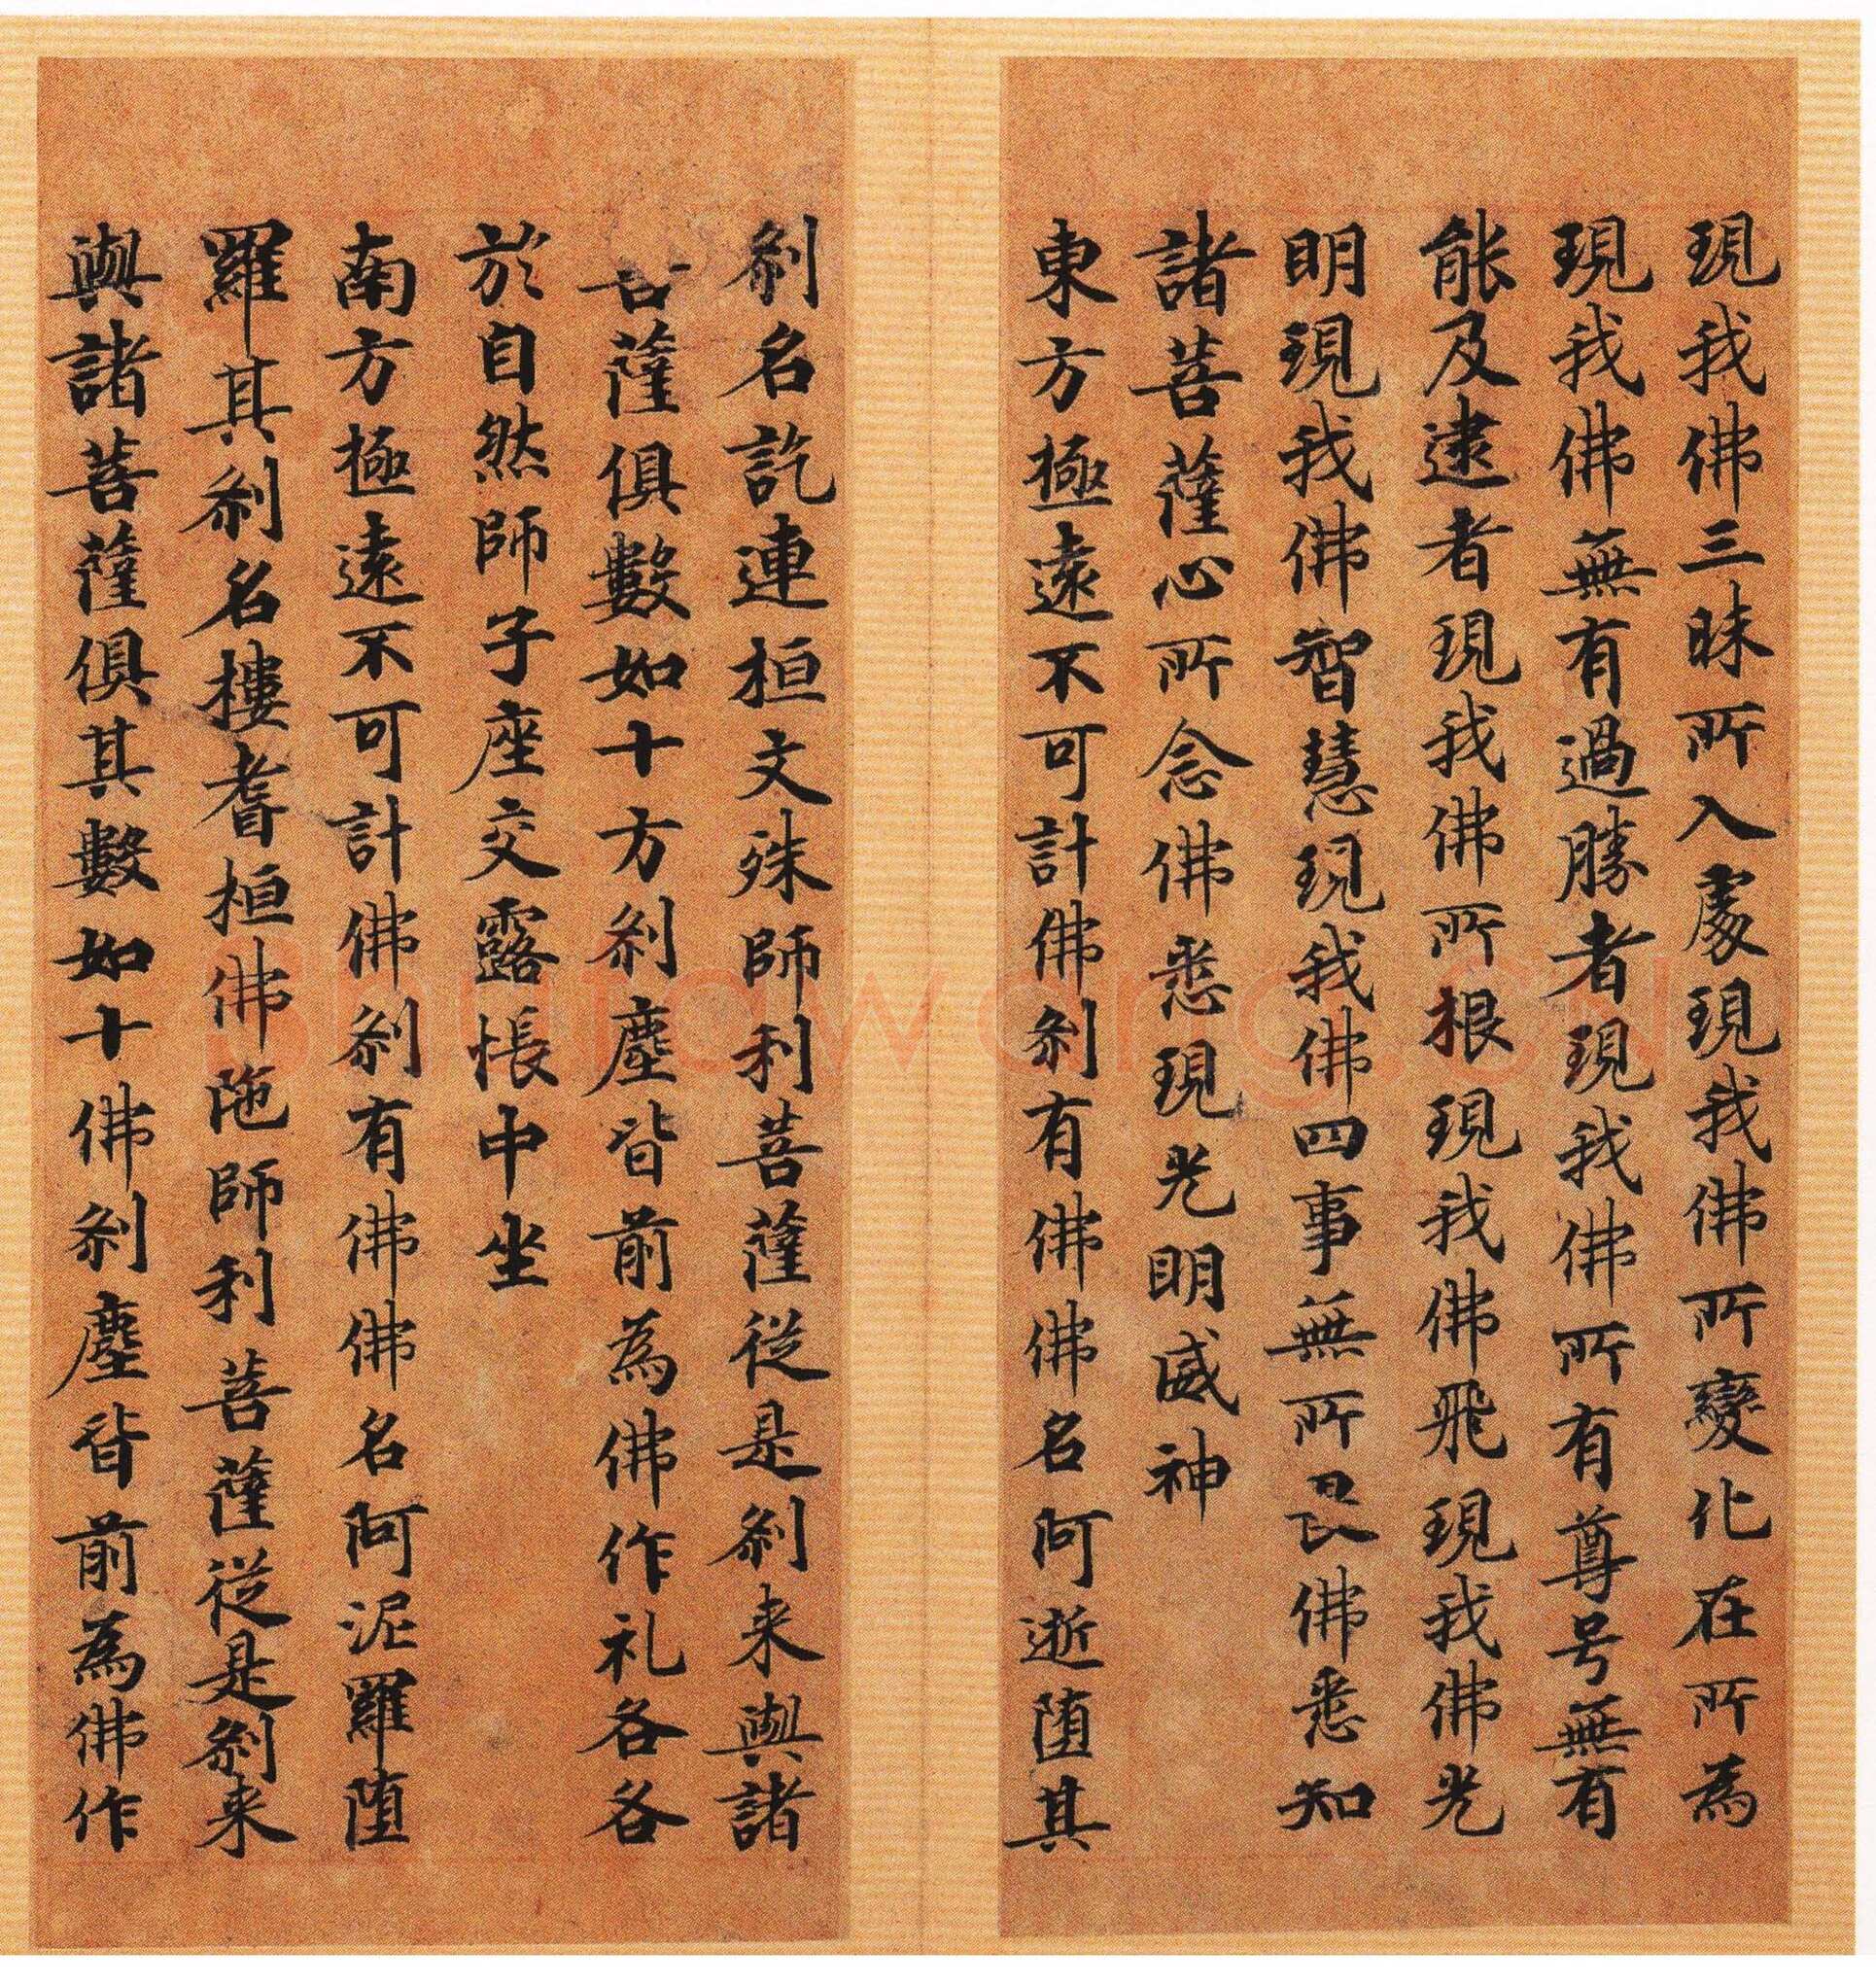 現我佛三昧所入處現我佛所變化在所為
現我佛無有過勝者現我佛所有尊号無有
能及逮者現我佛所根現我佛飛現我佛光
明現我佛智慧現我佛四事無所畏佛悉知
諸菩薩心所念佛悉現光明威神
東方極遠不可計佛刹有佛佛名阿逝墮其
刹名訖連桓文殊師利菩薩從是刹来與諸
菩薩俱數如十方刹塵皆前為佛作礼各各
於自然師子座交露帳中坐
南方極遠不可計佛刹有佛佛名阿泥羅墮
羅其刹名樓耆桓佛陁師利菩薩從是刹来
與諸菩薩俱其數如十佛刹塵皆前為佛作
Shufawang.CN